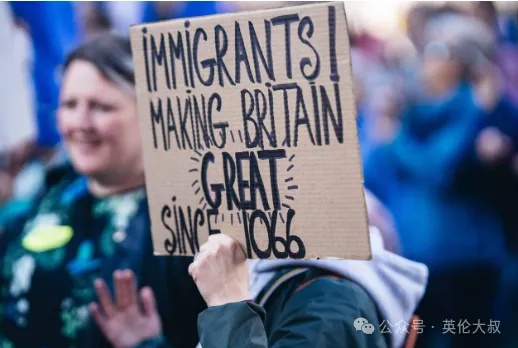 iMMiGRANTS!
MAKiNG BRiTAiN
GREAT
SiNCE 1066
公众号 · 英伦大叔